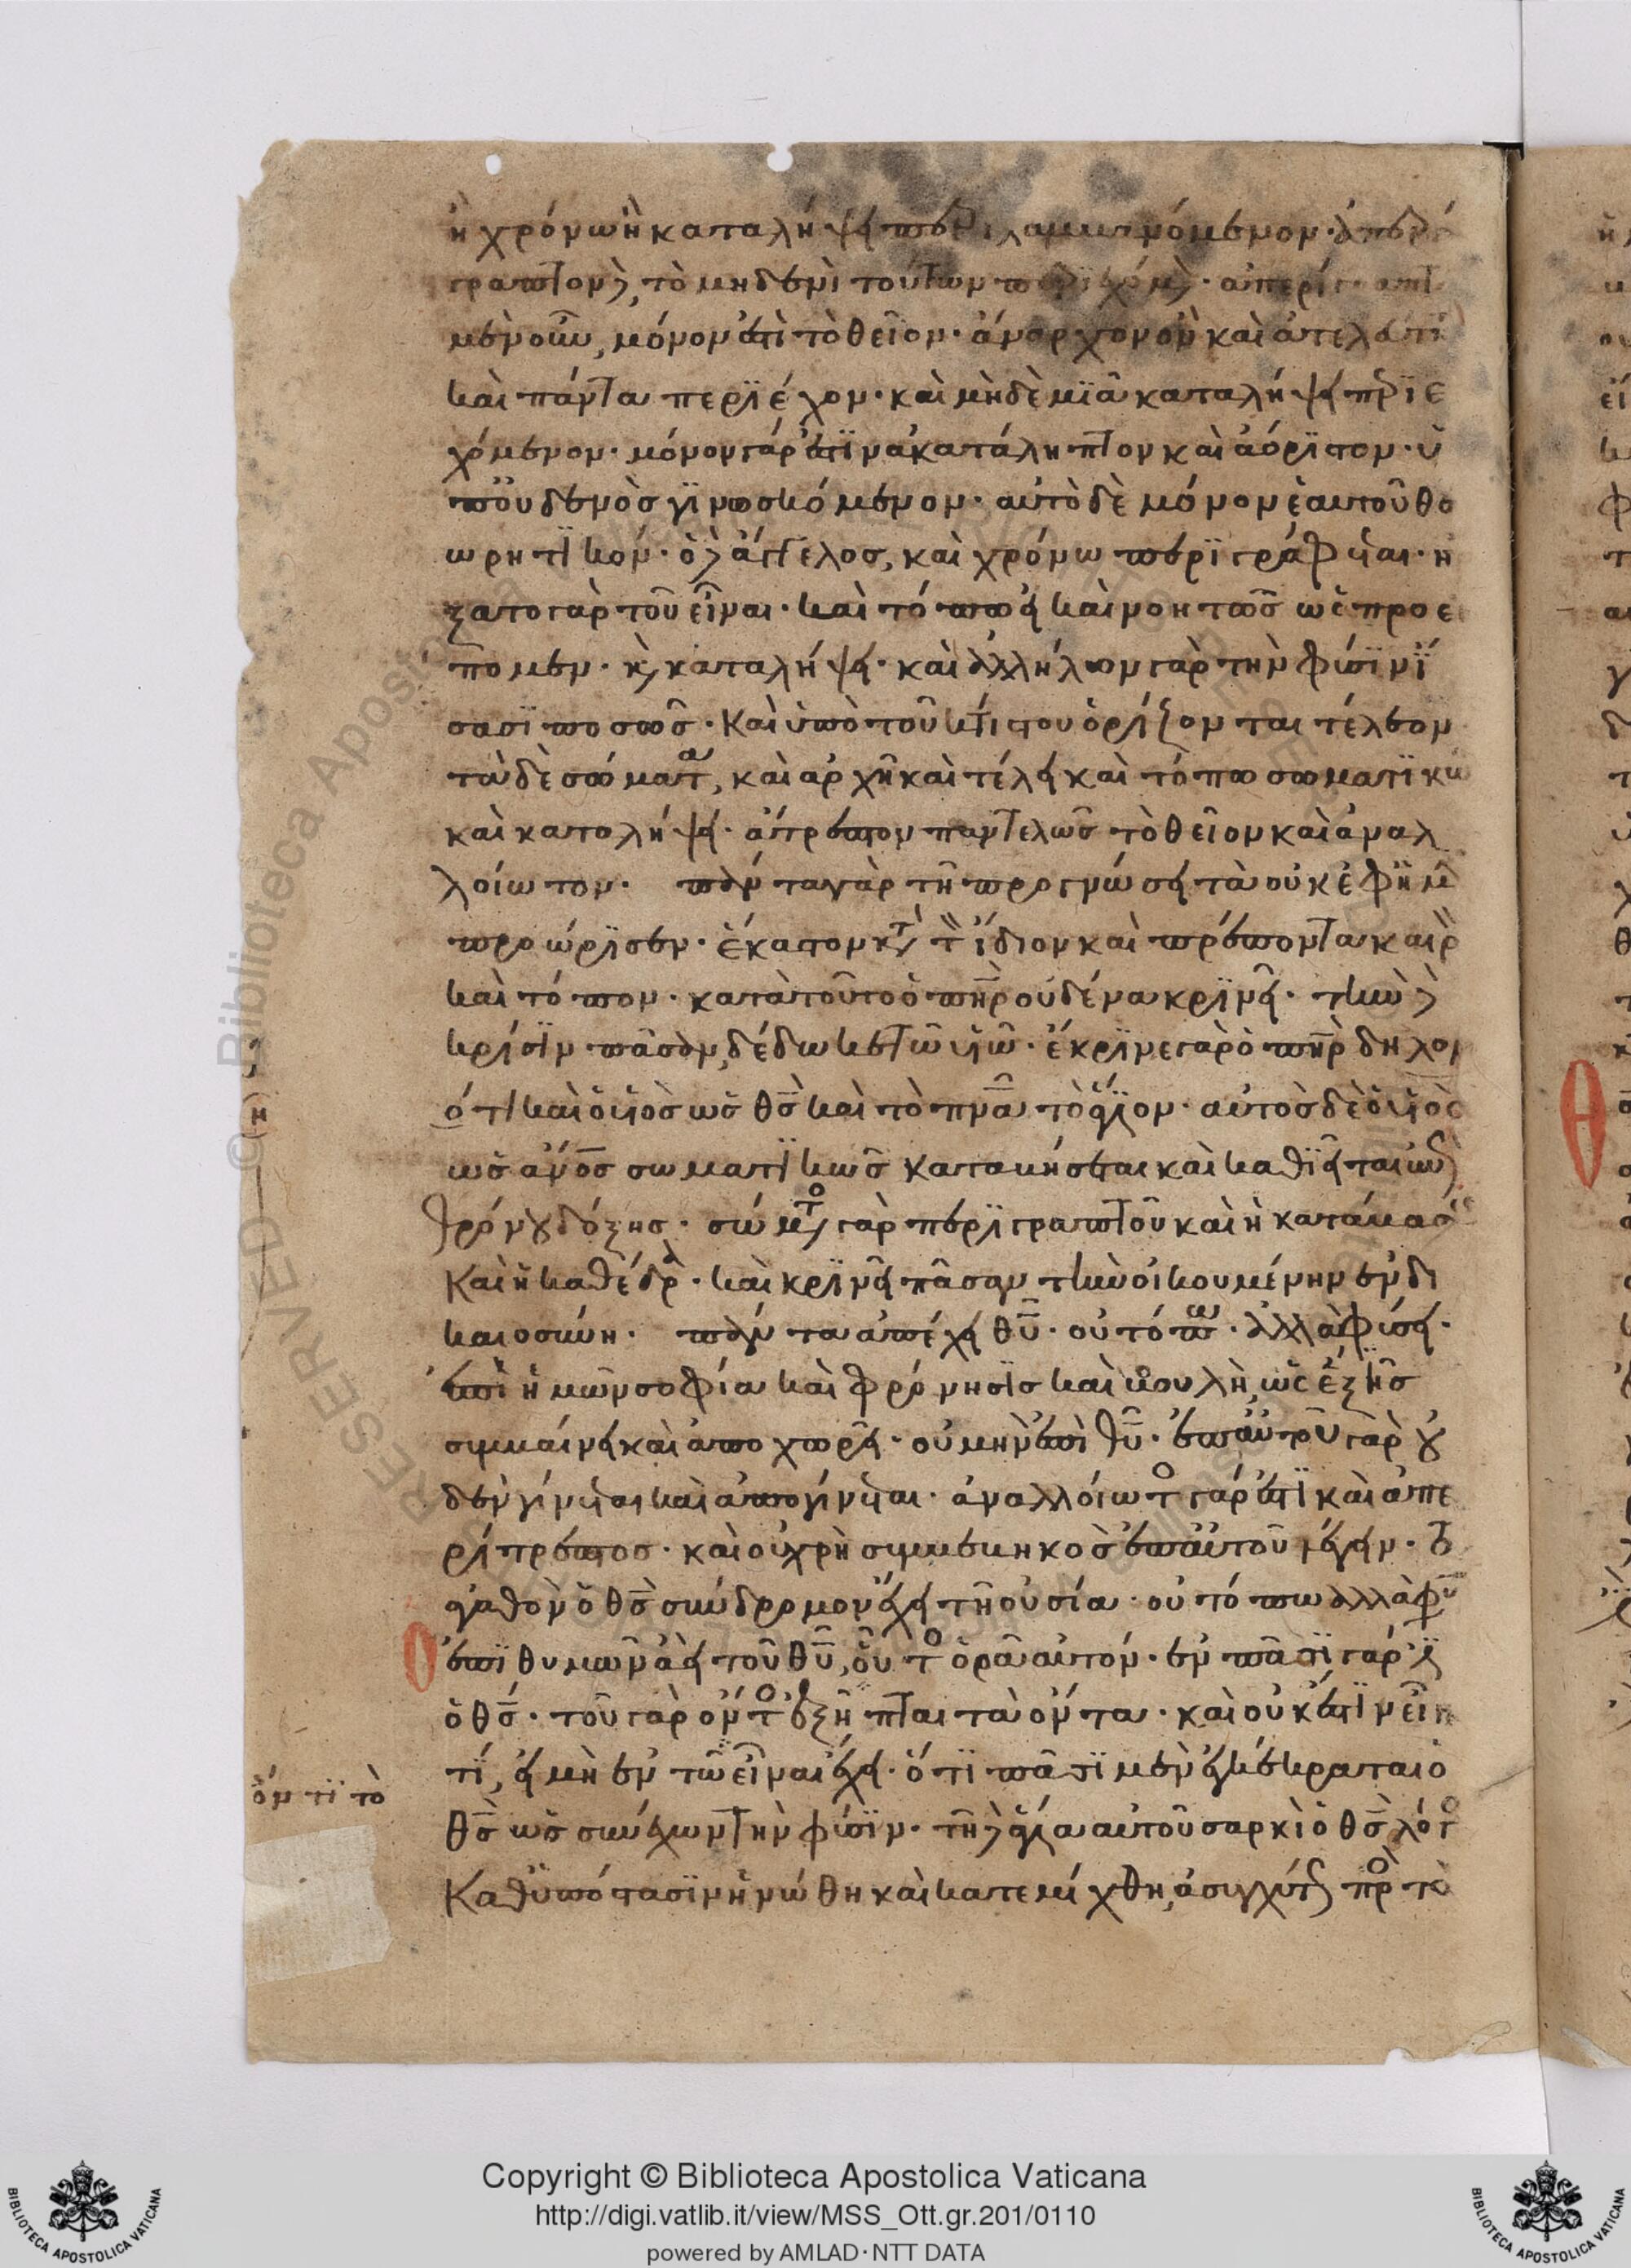 ἢ χρόνω ἢ καταλήψει περιλαμβανόμενον· ἀπερί
γραπτον δὲ, τὸ μηδενὶ τούτων περιεχόμενον· ἀπερίγραπτον
μὲν οὖν, μόνον ἐστὶ τὸ θεῖον· ἄναρχον ὂν καὶ ἀτελεύτητον
καὶ πάντα περιέχον· καὶ μηδὲ μϊᾶ καταλήψει περϊε
χόμενον· μόνον γάρ ἐστϊν ἀκατάληπτον καὶ ἀόρϊστον· ὑ
π' οὐδενὸς γϊνωσκόμενον· αὐτὸ δὲ μόνον ἑαυτοῦ θε
ωρητικόν· ὁ δὲ ἄγγελος, καὶ χρόνω περϊγράφεται· ἤρ
ξατο γὰρ τοῦ εἶναι· καὶ τόπω εἰ καὶ νοητῶς ὡς προεί
πομεν· καὶ καταλήψει· καὶ ἀλλήλων γὰρ τὴν φύσϊν ἴ
σασϊ πο σῶς· Καὶ ὑπὸ τοῦ κτίστου ὁρίζονται τέλεον
τὰ δὲ σώματα, καὶ ἀρχῆ καὶ τέλει καὶ τόπω σωματϊκῶ
καὶ καταλήψει· ἄτρεπτον παντελῶς τὸ θεῖον καὶ ἀναλ
λοίωτον· πάντα γὰρ τῆ προγνώσει τὰ οὐκ ἐφ' ἡμῖν
προώρϊσεν· ἕκαστον κατὰ τὸν ἴδιον καὶ πρέποντα καιρὸν
καὶ τόπον· κατὰ τοῦτο ὁ πηρ οὐδένα κρϊνει· τὴν δὲ
κρίσϊν πᾶσαν, δέδωκε τῶ υἱῶ· ἔκρϊνε γὰρ ὁ πηρ δηλον
ότι καὶ ὁ υἱὸς ὡς θς καὶ τὸ πνα τὸ ἅγϊον· αὐτὸς δὲ ὁ υἱὸς
ὡς ανος σωματϊκῶς καταβήσεται καὶ καθϊεῖται ἐπὶ
θρόνου δόξης· σώματος γὰρ περϊγραπτοῦ καὶ ἡ κατάβασις
Καὶ ἡ καθέδρα· καὶ κρϊνεῖ πᾶσαν τὴν οἰκουμένην ἐν δι
καιοσύνη· πάντα ἀπέχει θυ· οὐ τόπω· ἀλλὰ φύσει·
ἐπὶ ἡμῶν σοφία καὶ φρόνησϊς καὶ βουλὴ, ὡς ἕξϊς
συμβαίνει καὶ ἀποχωρεῖ· οὐ μὴν ἐπὶ θυ· ἐπ' αὐτοῦ γὰρ οὐ
δὲν γίνεται καὶ ἀπογίνεται· ἀναλλοίωτος γάρ ἐστϊ καὶ ἄτρε
πτος· καὶ οὐ χρὴ συμβεβηκὸς ἐπ' αὐτοῦ λέγειν· τὸ
ἀγαθὸν ὁ θς σύνδρομον ἔχει τῆ οὐσία· οὐ τόπω ἀλλὰ φύσει
Ὁ ἐπϊθυμῶν ἀεὶ τοῦ θυ, οὗτος ὁρᾶ αὐτόν· ἐν πᾶσϊ γάρ ἐστϊ
ὁ θς· τοῦ γὰρ ὄντος ἐξῆπται τὰ ὄντα· καὶ οὐκ ἔστϊν εἶναι
τί, εἰ μὴ ἐν τῶ εἶναι ἔχει· ὅτϊ πᾶσϊ μὲν ἐγκέκραται ὁ
ὄντϊ τὸ
θς ὡς συνέχων τὴν φύσϊν· τῆ δὲ ἁγία αὐτοῦ σαρκὶ ὁ θς λόγος
Καθ' ὑπόστασϊν ἡνώθη καὶ κατεμίχθη, ἀσυγχύτως πρὸς τὸ
Copyright © Biblioteca Apostolica Vaticana
http://digi.vatlib.it/view/MSS_Ott.gr.201/0110
powered by AMLAD·NTT DATA
BIBLIOTECA APOSTOLICA VATICANA
BIBLIOTECA APOSTOLICA VATICANA